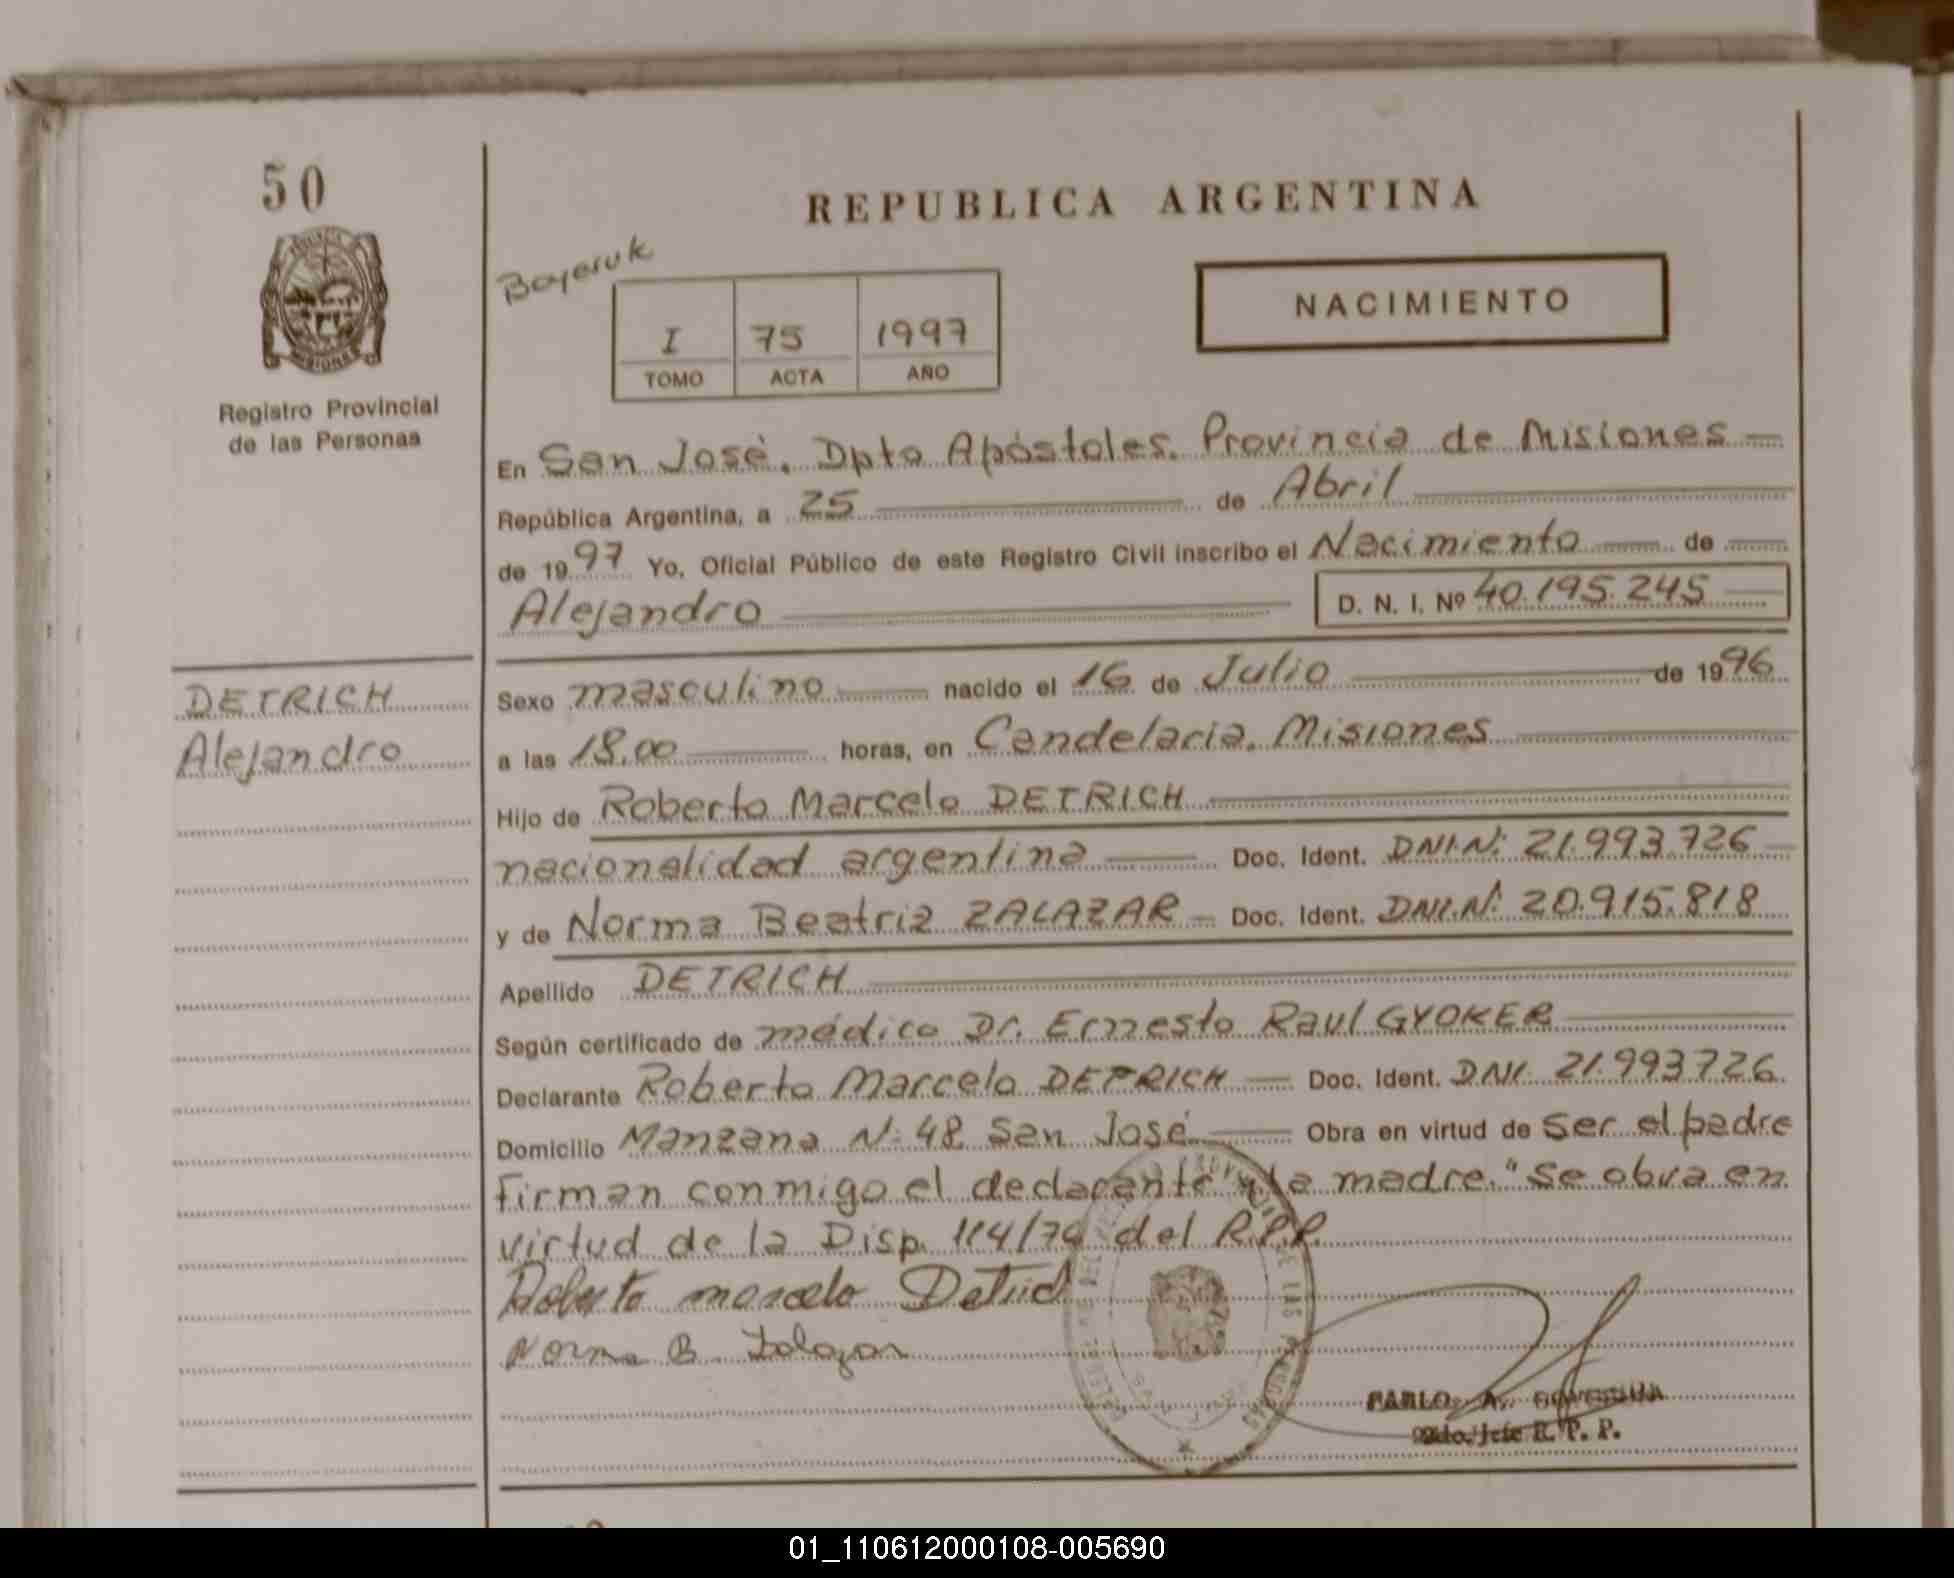 50
REPUBLICA ARGENTINA
Registro Provincial
de las Personas
Bayeruk
I 75 1997
TOMO ACTA AÑO
NACIMIENTO
En San José. Dpto Apóstoles. Provincia de Misiones
República Argentina, a 25 de Abril
de 1997 Yo, Oficial Público de este Registro Civil inscribo el Nacimiento de
Alejandro D. N. I. Nº 40.195.245
DETRICH
Alejandro
Sexo masculino nacido el 16 de Julio de 1996
a las 18.00 horas, en Candelaria. Misiones
Hijo de Roberto Marcelo DETRICH
nacionalidad argentina Doc. Ident. DNI.N: 21.993.726
y de Norma Beatriz ZALAZAR Doc. Ident. DNI.N: 20.915.818
Apellido DETRICH
Según certificado de médico Dr. Ernesto Raul GYOKER
Declarante Roberto Marcelo DETRICH Doc. Ident. DNI. 21.993726
Domicilio Manzana N: 48 San José Obra en virtud de Ser el padre
firman conmigo el declarante y la madre. "Se obra en
virtud de la Disp. 114/74 del R.P.P.
Roberto marcelo Detrich
Norma B. Zalazar
PABLO A.
2do. Jefe R. P. P.
01_110612000108-005690